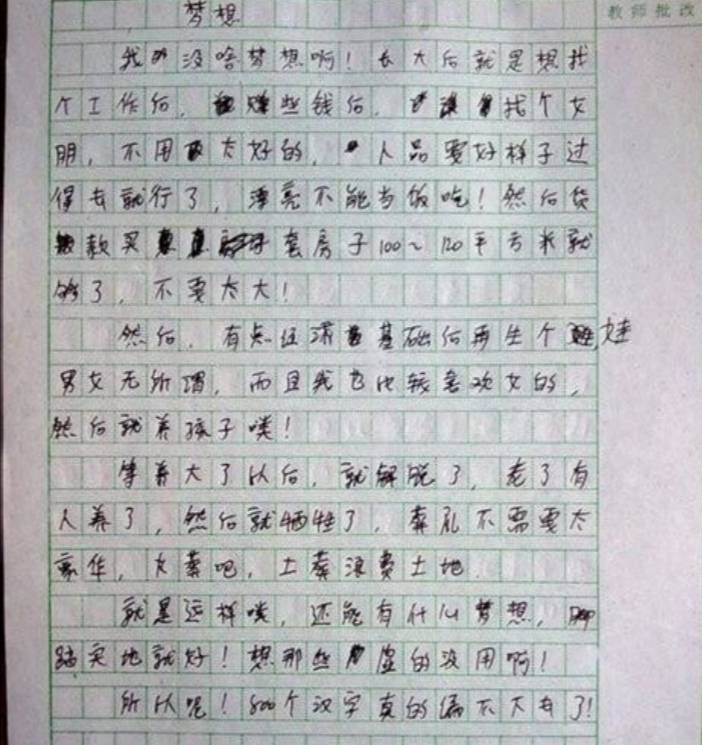 教师批改
梦想
我没啥梦想啊！长大后就是想找
个工作后，赚些钱后，找个女
朋，不用太好的，人品要好样子过
得去就行了，漂亮不能当饭吃！然后贷
款买套房子100~120平方米就
够了，不要太大！
然后，有点经济基础后再生个娃，
男女无所谓，而且我也比较喜欢女的，
然后就养孩子喽！
等养大了以后，就解脱了，老了有
人养了，然后就牺牲了，葬礼不需要太
豪华，火葬吧，土葬浪费土地
就是这样喽，还能有什么梦想，脚
踏实地就好！想那些虚的没用啊！
所以呢！800个汉字真的编不下去了！